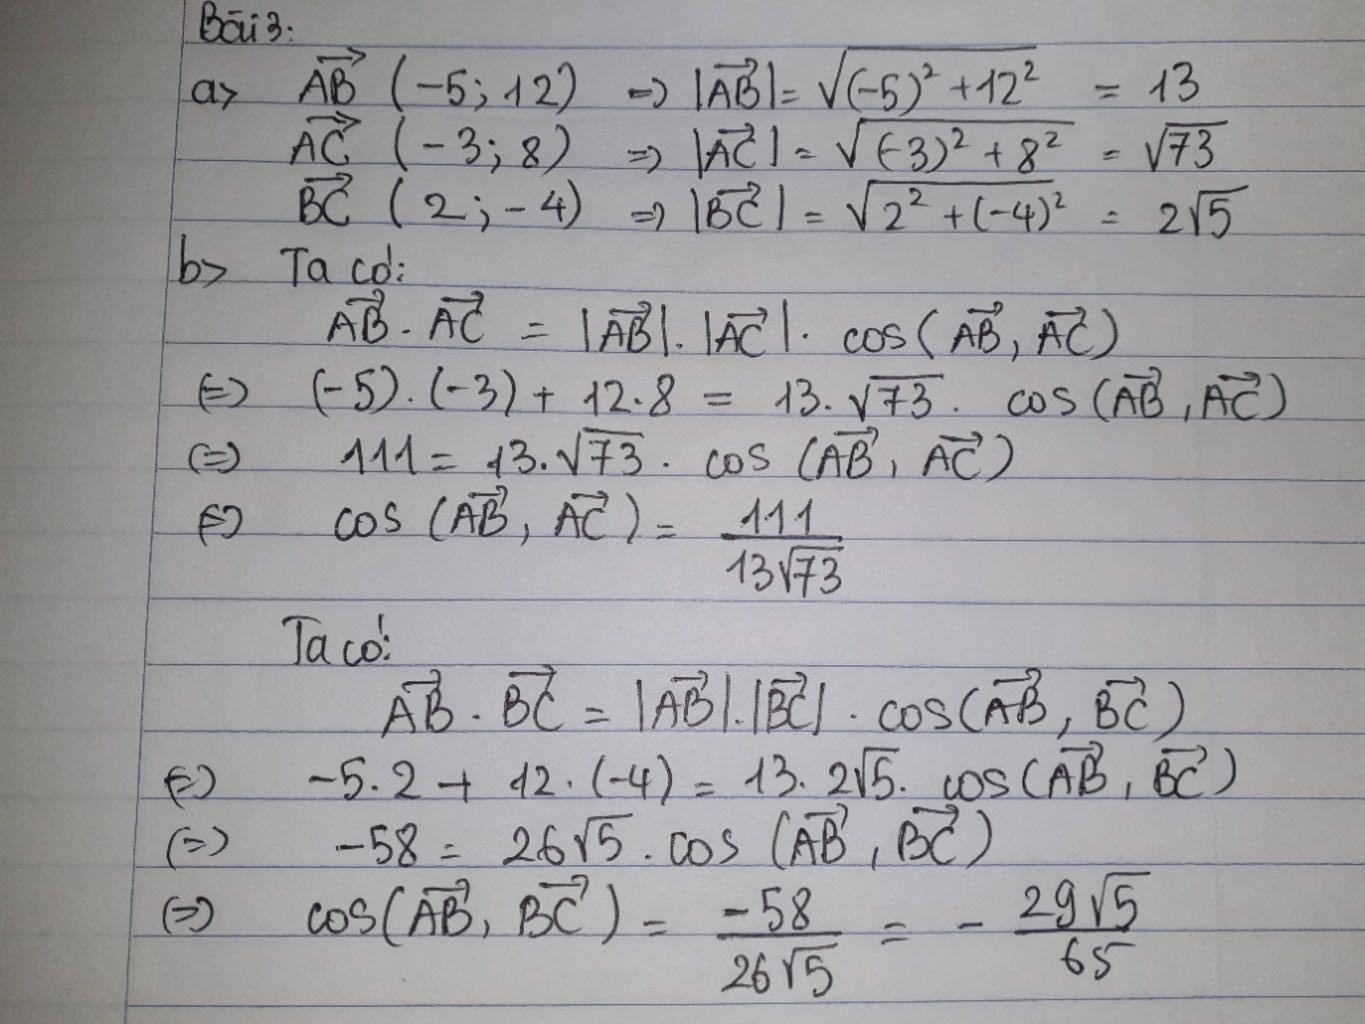 Bài 3:
a> AB→ (-5; 12) => |AB→| = √((-5)² + 12²) = 13
AC→ (-3; 8) => |AC→| = √((-3)² + 8²) = √73
BC→ (2; -4) => |BC→| = √(2² + (-4)²) = 2√5
b> Ta có:
AB→ . AC→ = |AB→|. |AC→|. cos(AB→, AC→)
(=) (-5).(-3) + 12.8 = 13.√73. cos(AB→, AC→)
(=) 111 = 13.√73. cos(AB→, AC→)
(=) cos(AB→, AC→) = 111/(13√73)
Ta có:
AB→ . BC→ = |AB→|.|BC→|. cos(AB→, BC→)
(=) -5.2 + 12.(-4) = 13. 2√5. cos(AB→, BC→)
(=) -58 = 26√5. cos(AB→, BC→)
(=) cos(AB→, BC→) = -58/(26√5) = - 29√5/65